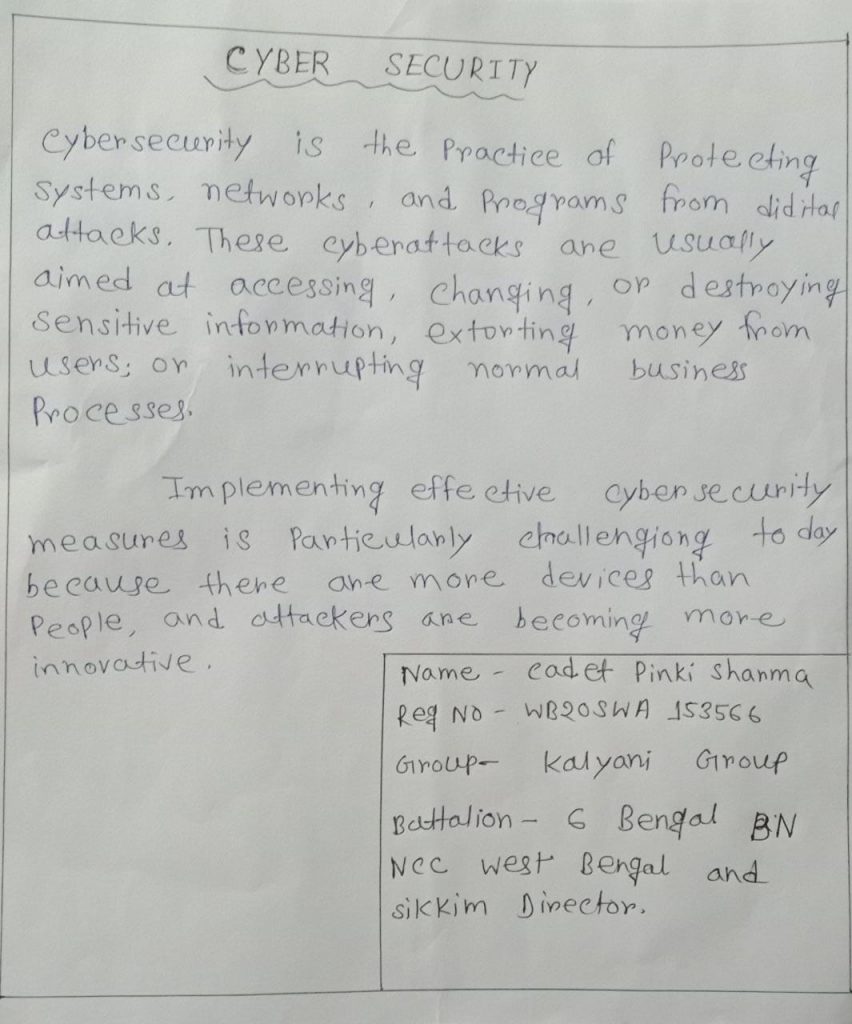 CYBER SECURITY
Cybersecurity is the Practice of Protecting
systems, networks, and Programs from didital
attacks. These cyberattacks are usually
aimed at accessing, changing, or destroying
sensitive information, extorting money from
users; or interrupting normal business
Processes.
Implementing effective cybersecurity
measures is Particularly challengiong today
because there are more devices than
People, and attackers are becoming more
innovative.
Name - Cadet Pinki Sharma
Reg No - WB20SWA 153566
Group- Kalyani Group
Battalion - 6 Bengal BN
NCC West Bengal and
Sikkim Director.